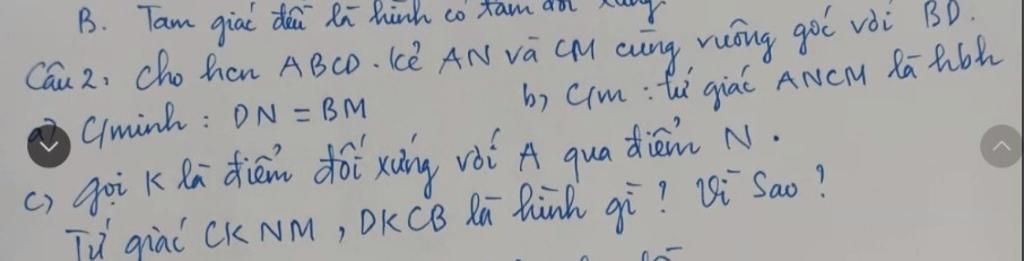 B. Tam giác đều là hình có tâm đối xứng
Câu 2: Cho hcn ABCD. Kẻ AN và CM cùng vuông góc với BD.
a) C/minh: DN = BM b, C/m: tứ giác ANCM là hbh
c) gọi K là điểm đối xứng với A qua điểm N.
Tứ giác CKNM, DKCB là hình gì? Vì sao?